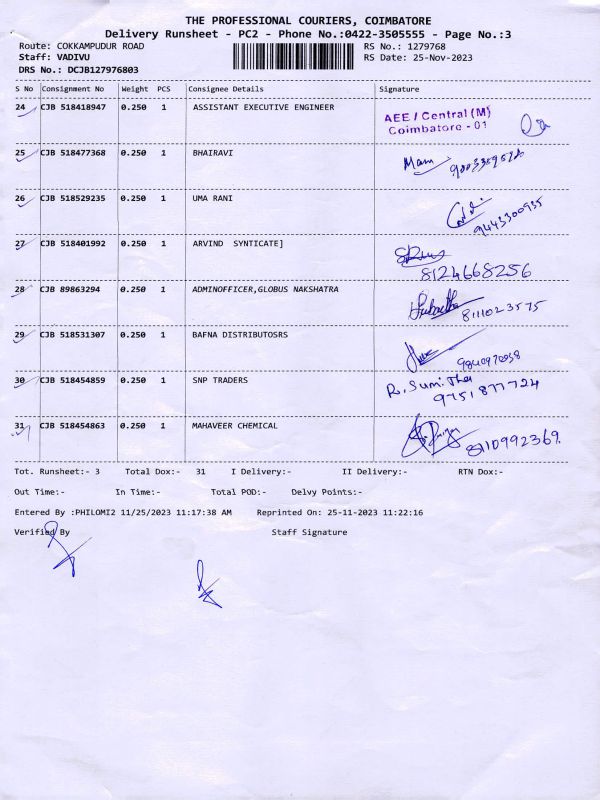 THE PROFESSIONAL COURIERS, COIMBATORE
Delivery Runsheet - PC2 - Phone No.:0422-3505555 - Page No.:3
Route: COKKAMPUDUR ROAD RS No.: 1279768
Staff: VADIVU RS Date: 25-Nov-2023
DRS No.: DCJB127976803
S No Consignment No Weight PCS Consignee Details Signature
24 CJB 518418947 0.250 1 ASSISTANT EXECUTIVE ENGINEER
AEE / Central (M)
Coimbatore - 01
25 CJB 518477368 0.250 1 BHAIRAVI
26 CJB 518529235 0.250 1 UMA RANI
9443300935
27 CJB 518401992 0.250 1 ARVIND SYNTICATE]
8124668256
28 CJB 89863294 0.250 1 ADMINOFFICER,GLOBUS NAKSHATRA
8111023575
29 CJB 518531307 0.250 1 BAFNA DISTRIBUTOSRS
30 CJB 518454859 0.250 1 SNP TRADERS R. Sumitha
9751877724
31 CJB 518454863 0.250 1 MAHAVEER CHEMICAL
8110992369.
Tot. Runsheet:- 3 Total Dox:- 31 I Delivery:- II Delivery:- RTN Dox:-
Out Time:- In Time:- Total POD:- Delvy Points:-
Entered By :PHILOMI2 11/25/2023 11:17:38 AM Reprinted On: 25-11-2023 11:22:16
Verified By Staff Signature